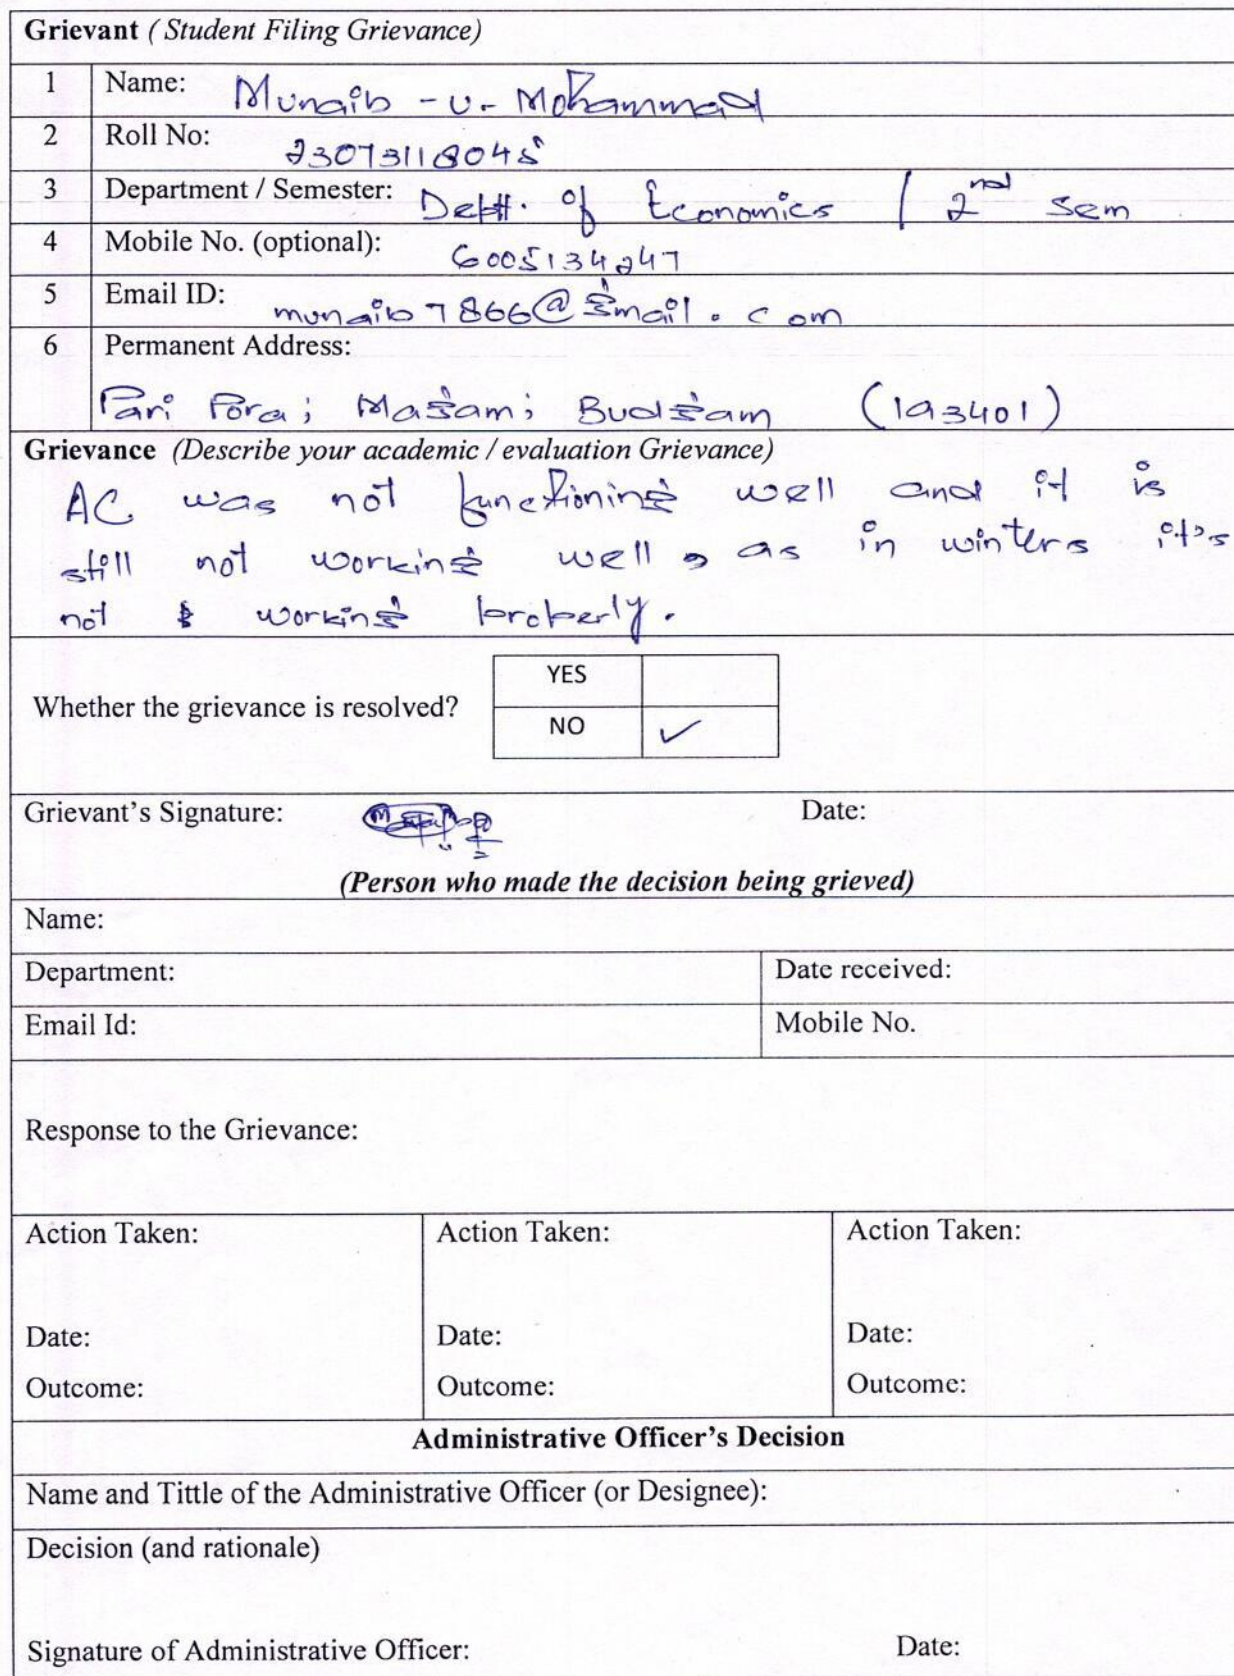 Grievant ( Student Filing Grievance)
1 Name: Munaib - u - Mohammad
2 Roll No: 23073118045
3 Department / Semester: Deptt. of Economics / 2nd Sem
4 Mobile No. (optional): 6005134247
5 Email ID: munaib7866@gmail.com
6 Permanent Address:
Pari Pora; Magam; Budgam (193401)
Grievance (Describe your academic / evaluation Grievance)
AC was not functioning well and it is
still not working well, as in winters it's
not working properly.
YES
Whether the grievance is resolved?
NO ✓
Grievant's Signature: Date:
(Person who made the decision being grieved)
Name:
Department: Date received:
Email Id: Mobile No.
Response to the Grievance:
Action Taken: Action Taken: Action Taken:
Date: Date: Date:
Outcome: Outcome: Outcome:
Administrative Officer's Decision
Name and Tittle of the Administrative Officer (or Designee):
Decision (and rationale)
Signature of Administrative Officer: Date: